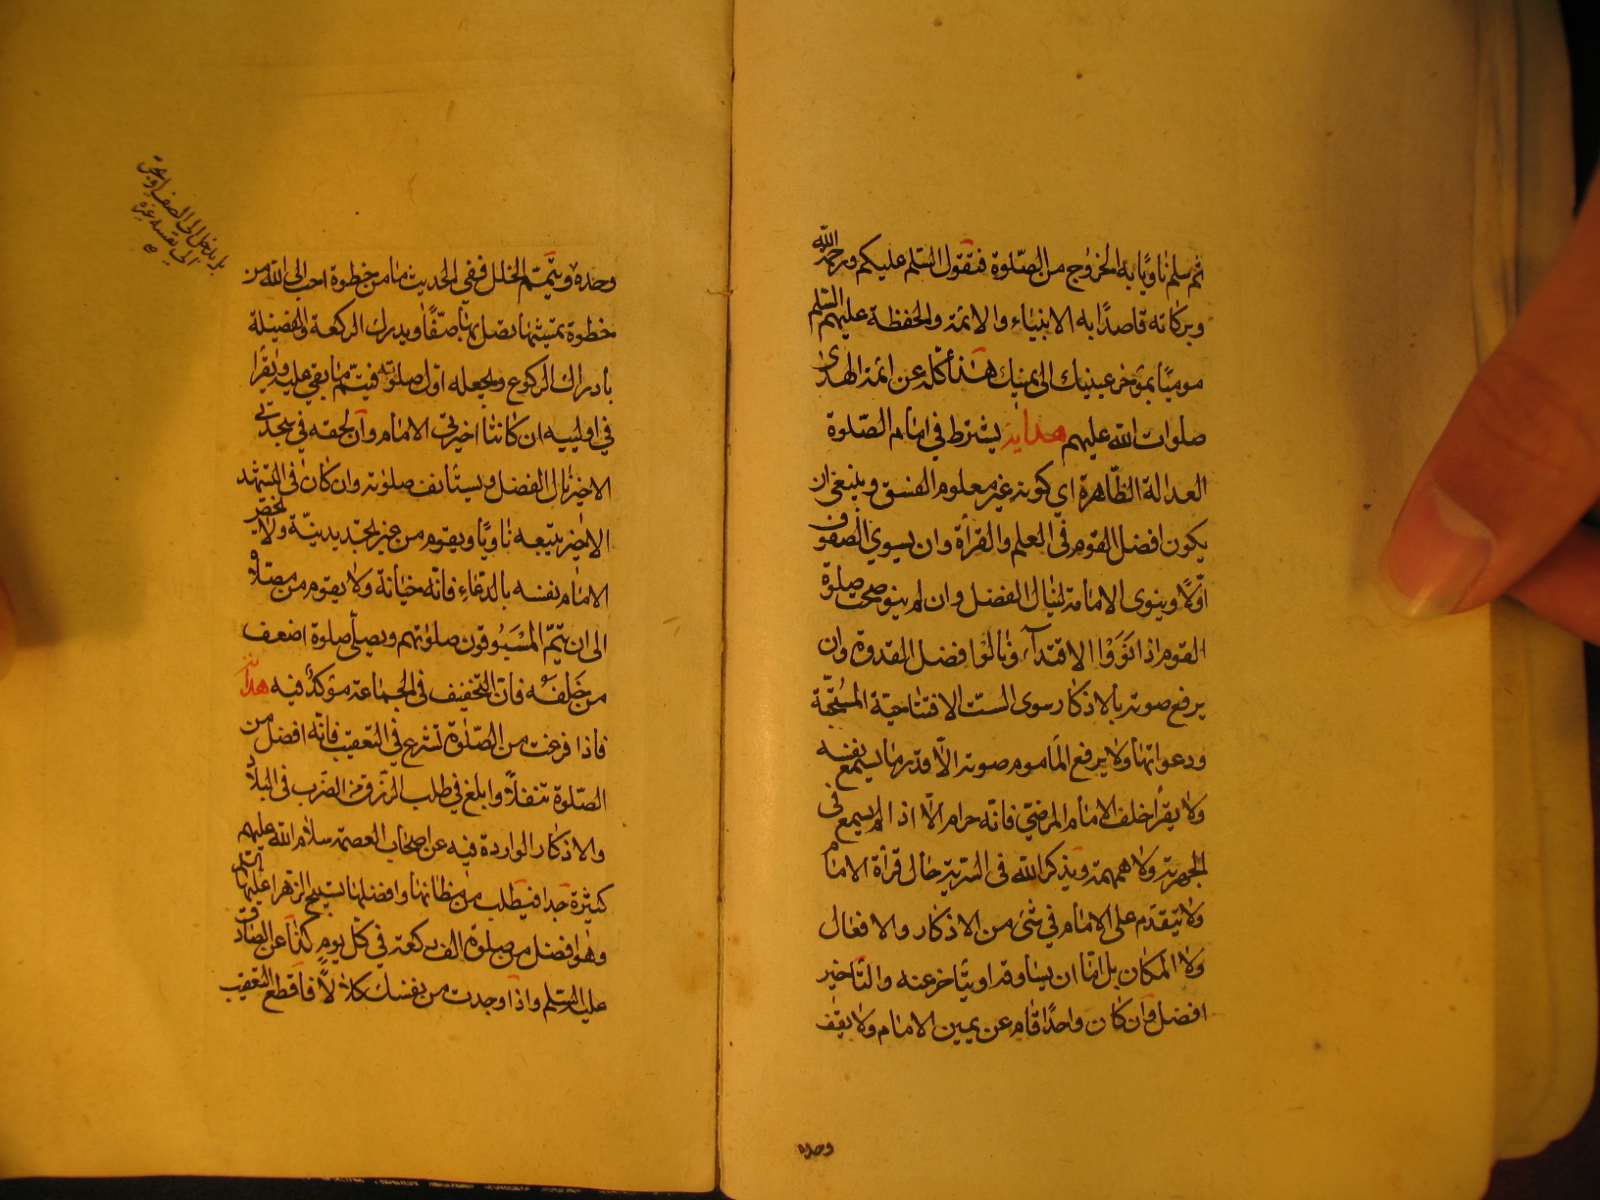 ثم سلم ناويا به الخروج من الصلوة فتقول السلم عليكم ورحمة الله
وبركاته قاصدا به الانبياء والائمة والحفظة عليهم السلم
موميا بمؤخر عينيك الى يمينك هذا كله عن ائمة الهدى
صلوات الله عليهم هداية يشترط في امام الصلوة
العدالة الظاهرة اي كونه غير معلوم الفسق وينبغي ان
يكون افضل القوم في العلم والقرأة وان يسوي الصفوف
اولا وينوى الامامة لينال الفضل وان لم ينو صحت صلوة
القوم اذا نووا الاقتداء ونالوا فضل القدوة وان
يرفع صوته بالاذكار سوى الست الافتتاحية المستحبة
ودعواتها ولا يرفع الماموم صوته الا قدر ما يسمع نفسه
ولا يقرأ خلف الامام المرضي فانه حرام الا اذا لم يسمع في
الجهرية ولا همهمة ويذكر الله في السرية حال قرأة الامام
ولا يتقدم على الامام في شئ من الاذكار والافعال
ولا المكان بل اما ان يساوقه او يتاخر عنه والتاخير
افضل وان كان واحدا قام عن يمين الامام ولا يقف
وحده
وحده ويتمم الخلل ففي الحديث ما من خطوة احب الى الله من
خطوة تمشيها تصل بها صفا ويدرك الركعة والفضيلة
بادراك الركوع ويجعله اول صلوته فيتم ما بقي عليه ويقرأ
في اوليیه ان كانتا اخيرتي الامام وان لحقه في سجدتي
الاخيرة نال الفضل ويستأنف صلوته وان كان في التشهد
الاخير يتبعه ناويا ويقوم من غير تجديد نية ولا يخص
الامام نفسه بالدعاء فانه خيانة ولا يقوم من مصلاه
الى ان يتم المسبوقون صلوتهم ويصلي صلوة اضعف
من خلفه فان التخفيف في الجماعة مؤكد فيه هداية
فاذا فرغت من الصلوة تشرع في التعقيب فانه افضل من
الصلوة تنفلا وابلغ في طلب الرزق من الضرب في البلاد
والاذكار الواردة فيه عن اصحاب العصمة سلام الله عليهم
كثيرة جدا فيطلب من مظانها وافضلها تسبيح الزهرا عليها السلم
وهو افضل من صلوة الف ركعة في كل يوم كذا عن الصادق
عليه السلم واذا وجدت من نفسك كلالا فاقطع التعقيب
بل يدخل الى الصف او يجر
الى نفسه غيره